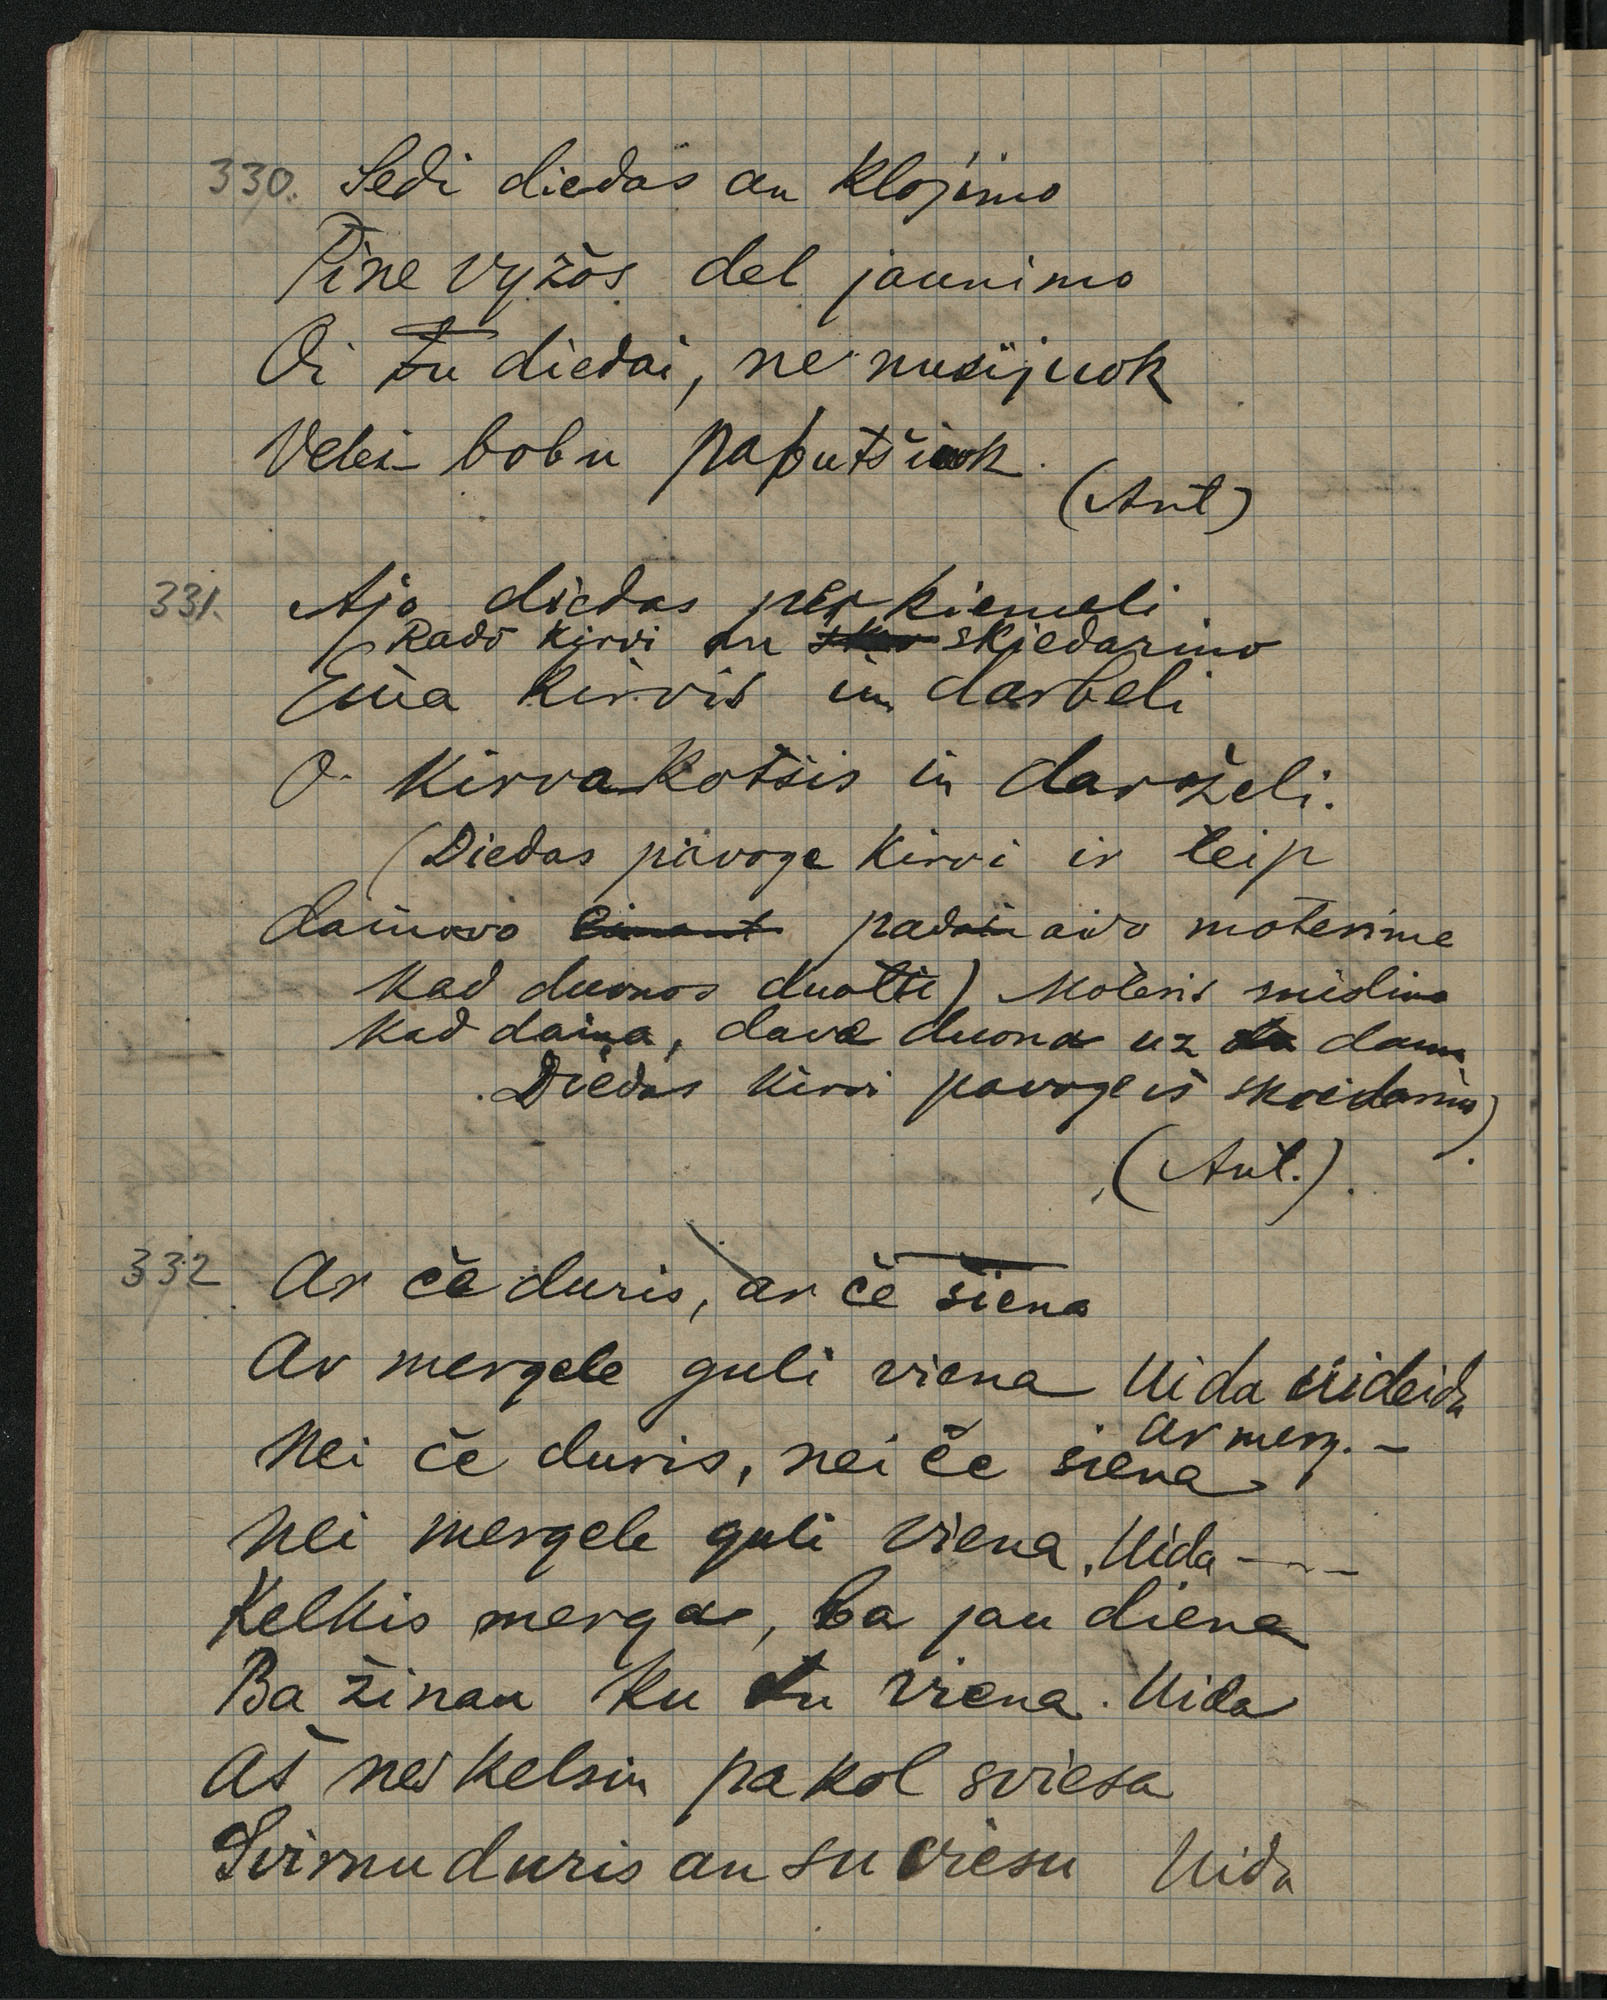 330. Sedi diedas an klojimo
Pine vyžos del jaunimo
Oi tu diedai, ne nusijuok
Velei bobu pabutšiuok.
(Ant)
331. Ajo diedas per kiemeli
Rado kirvi an skiedarino
Eina kirvis in darbeli
O kirvakotšis in darželi.
(Diedas pavoge kirvi ir teip
dainavo padainavo moterime
kad duonos duotu) Moteris mislino
kad daina, dava duona uz daina
Diedas kirvi pavoge iš skiedarino)
(Ant.).
332 Ar če duris, ar če siena
Ar mergele guli viena Uida uideida
Ar merg. –
Nei če duris, nei če siena
Nei mergele guli viena. Uida - - -
Kelkis merga, ba jau diena
Ba žinau ku tu viena. Uida
Aš neskelsiu pakol sviesa
Svirnu duris an su viesu Uida